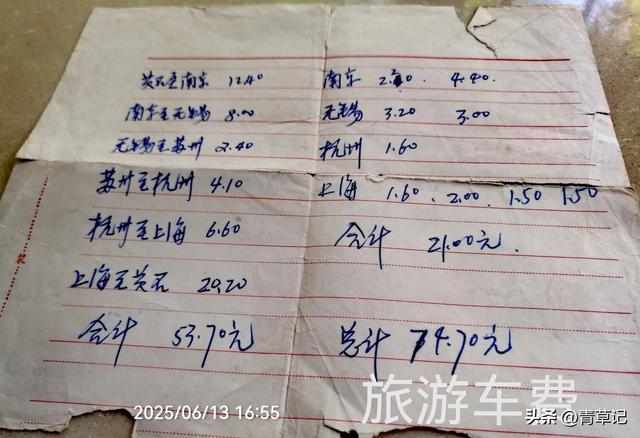 黄石至南京 12.40
南京至无锡 8.00
无锡至苏州 2.40
苏州至杭州 4.10
杭州至上海 6.60
上海至黄石 20.20
合计 53.70元
南京 4.40.
无锡 3.20 3.00
杭州 1.60
上海 1.60. 2.00. 1.50 1.50
合计 21.00元.
总计 74.70元
旅游车费
2025/06/13 16:55
头条 @青草记